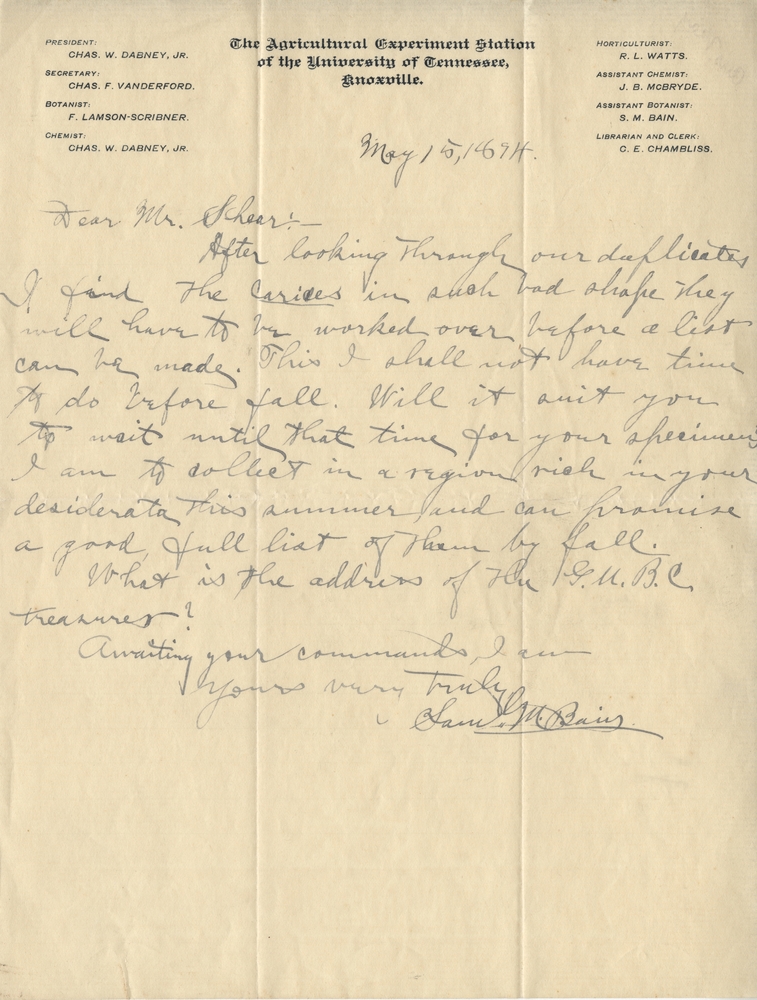 PRESIDENT:
CHAS. W. DABNEY, JR.
SECRETARY:
CHAS. F. VANDERFORD.
BOTANIST:
F. LAMSON-SCRIBNER.
CHEMIST:
CHAS. W. DABNEY, JR.
The Agricultural Experiment Station
of the University of Tennessee,
Knoxville.
HORTICULTURIST:
R. L. WATTS.
ASSISTANT CHEMIST:
J. B. McBRYDE.
ASSISTANT BOTANIST:
S. M. BAIN.
LIBRARIAN AND CLERK:
C. E. CHAMBLISS.
May 15, 1894.
Dear Mr. Shear:—
After looking through our duplicates
I find the carices in such bad shape they
will have to be worked over before a list
can be made. This I shall not have time
to do before fall. Will it suit you
to wait until that time for your specimens
I am to collect in a region rich in your
desiderata this summer and can promise
a good, full list of them by fall.
What is the address of the G.U.B.C.
treasurer?
Awaiting your commands, I am
Yours very truly,
Sam'l M. Bain.